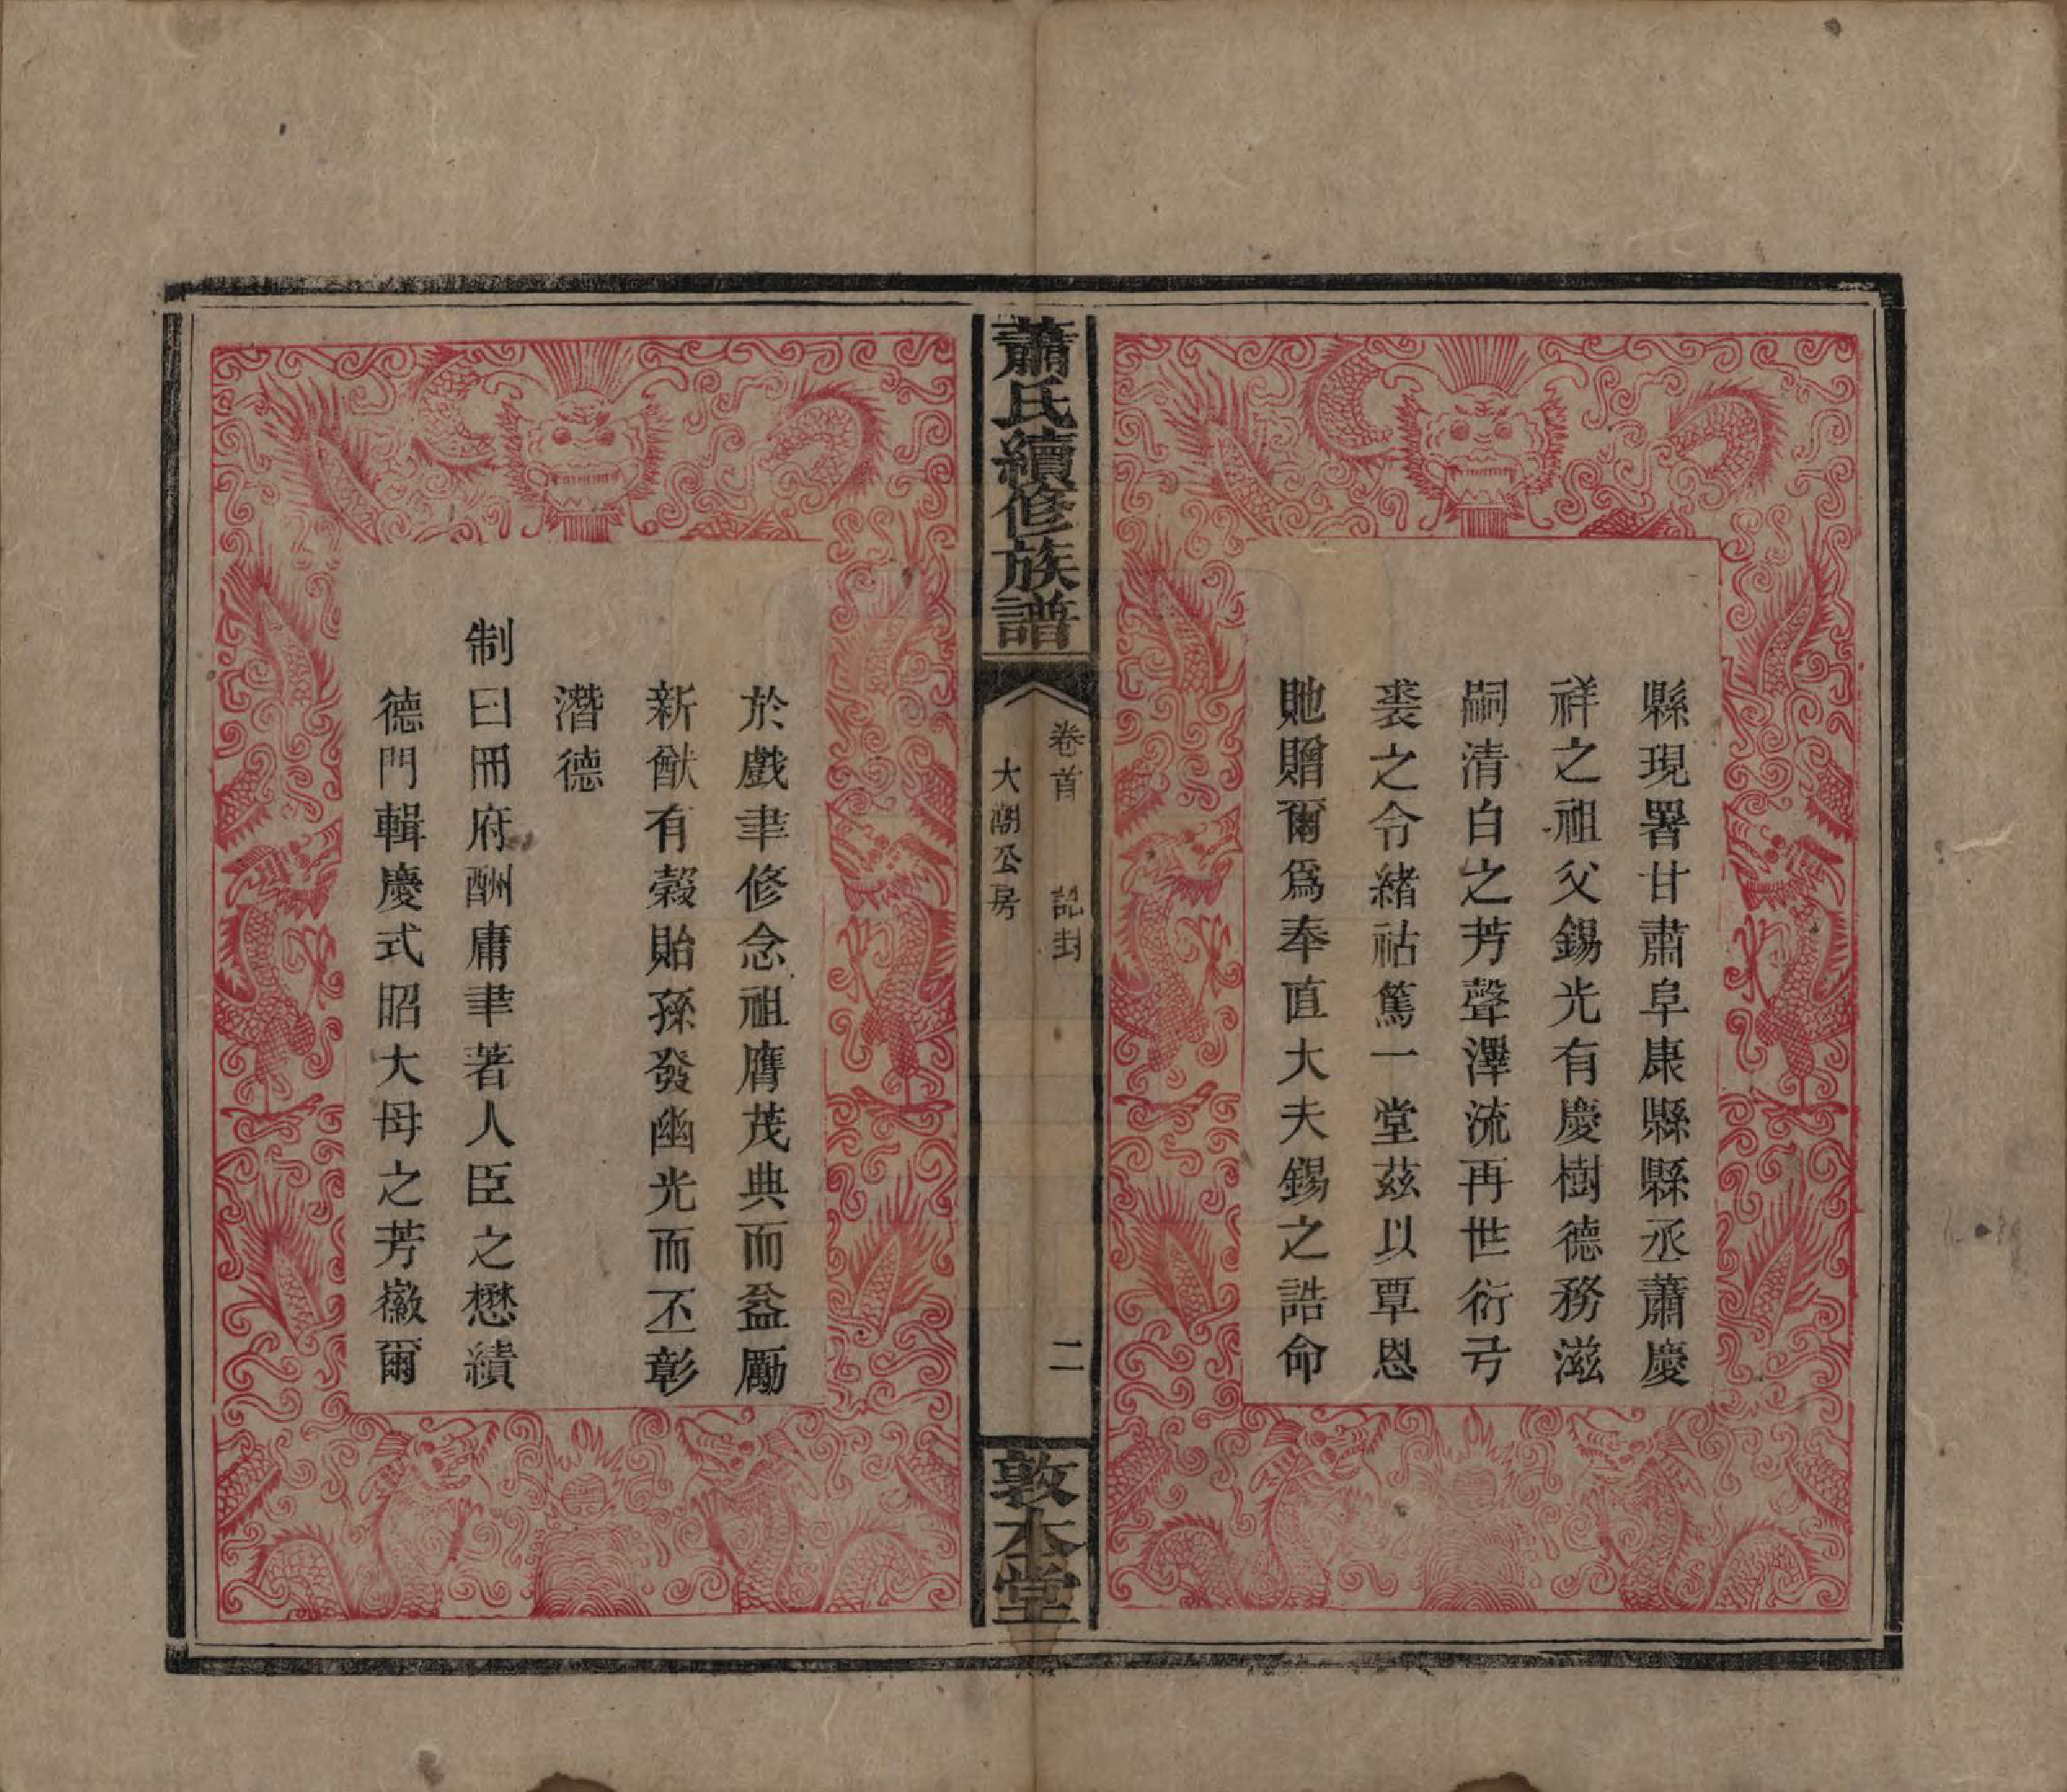 縣現署甘肅阜康縣縣丞蕭慶
祥之祖父錫光有慶樹德務滋
嗣清白之芳聲澤流再世衍弓
裘之令緒祜篤一堂茲以覃恩
貤贈爾爲奉直大夫錫之誥命
蕭氏續修族譜
卷首 誥封
大湖公房
二
敦本堂
於戲聿修念祖膺茂典而益勵
新猷有穀貽孫發幽光而丕彰
潛德
制曰冊府酬庸聿著人臣之懋績
德門輯慶式昭大母之芳徽爾